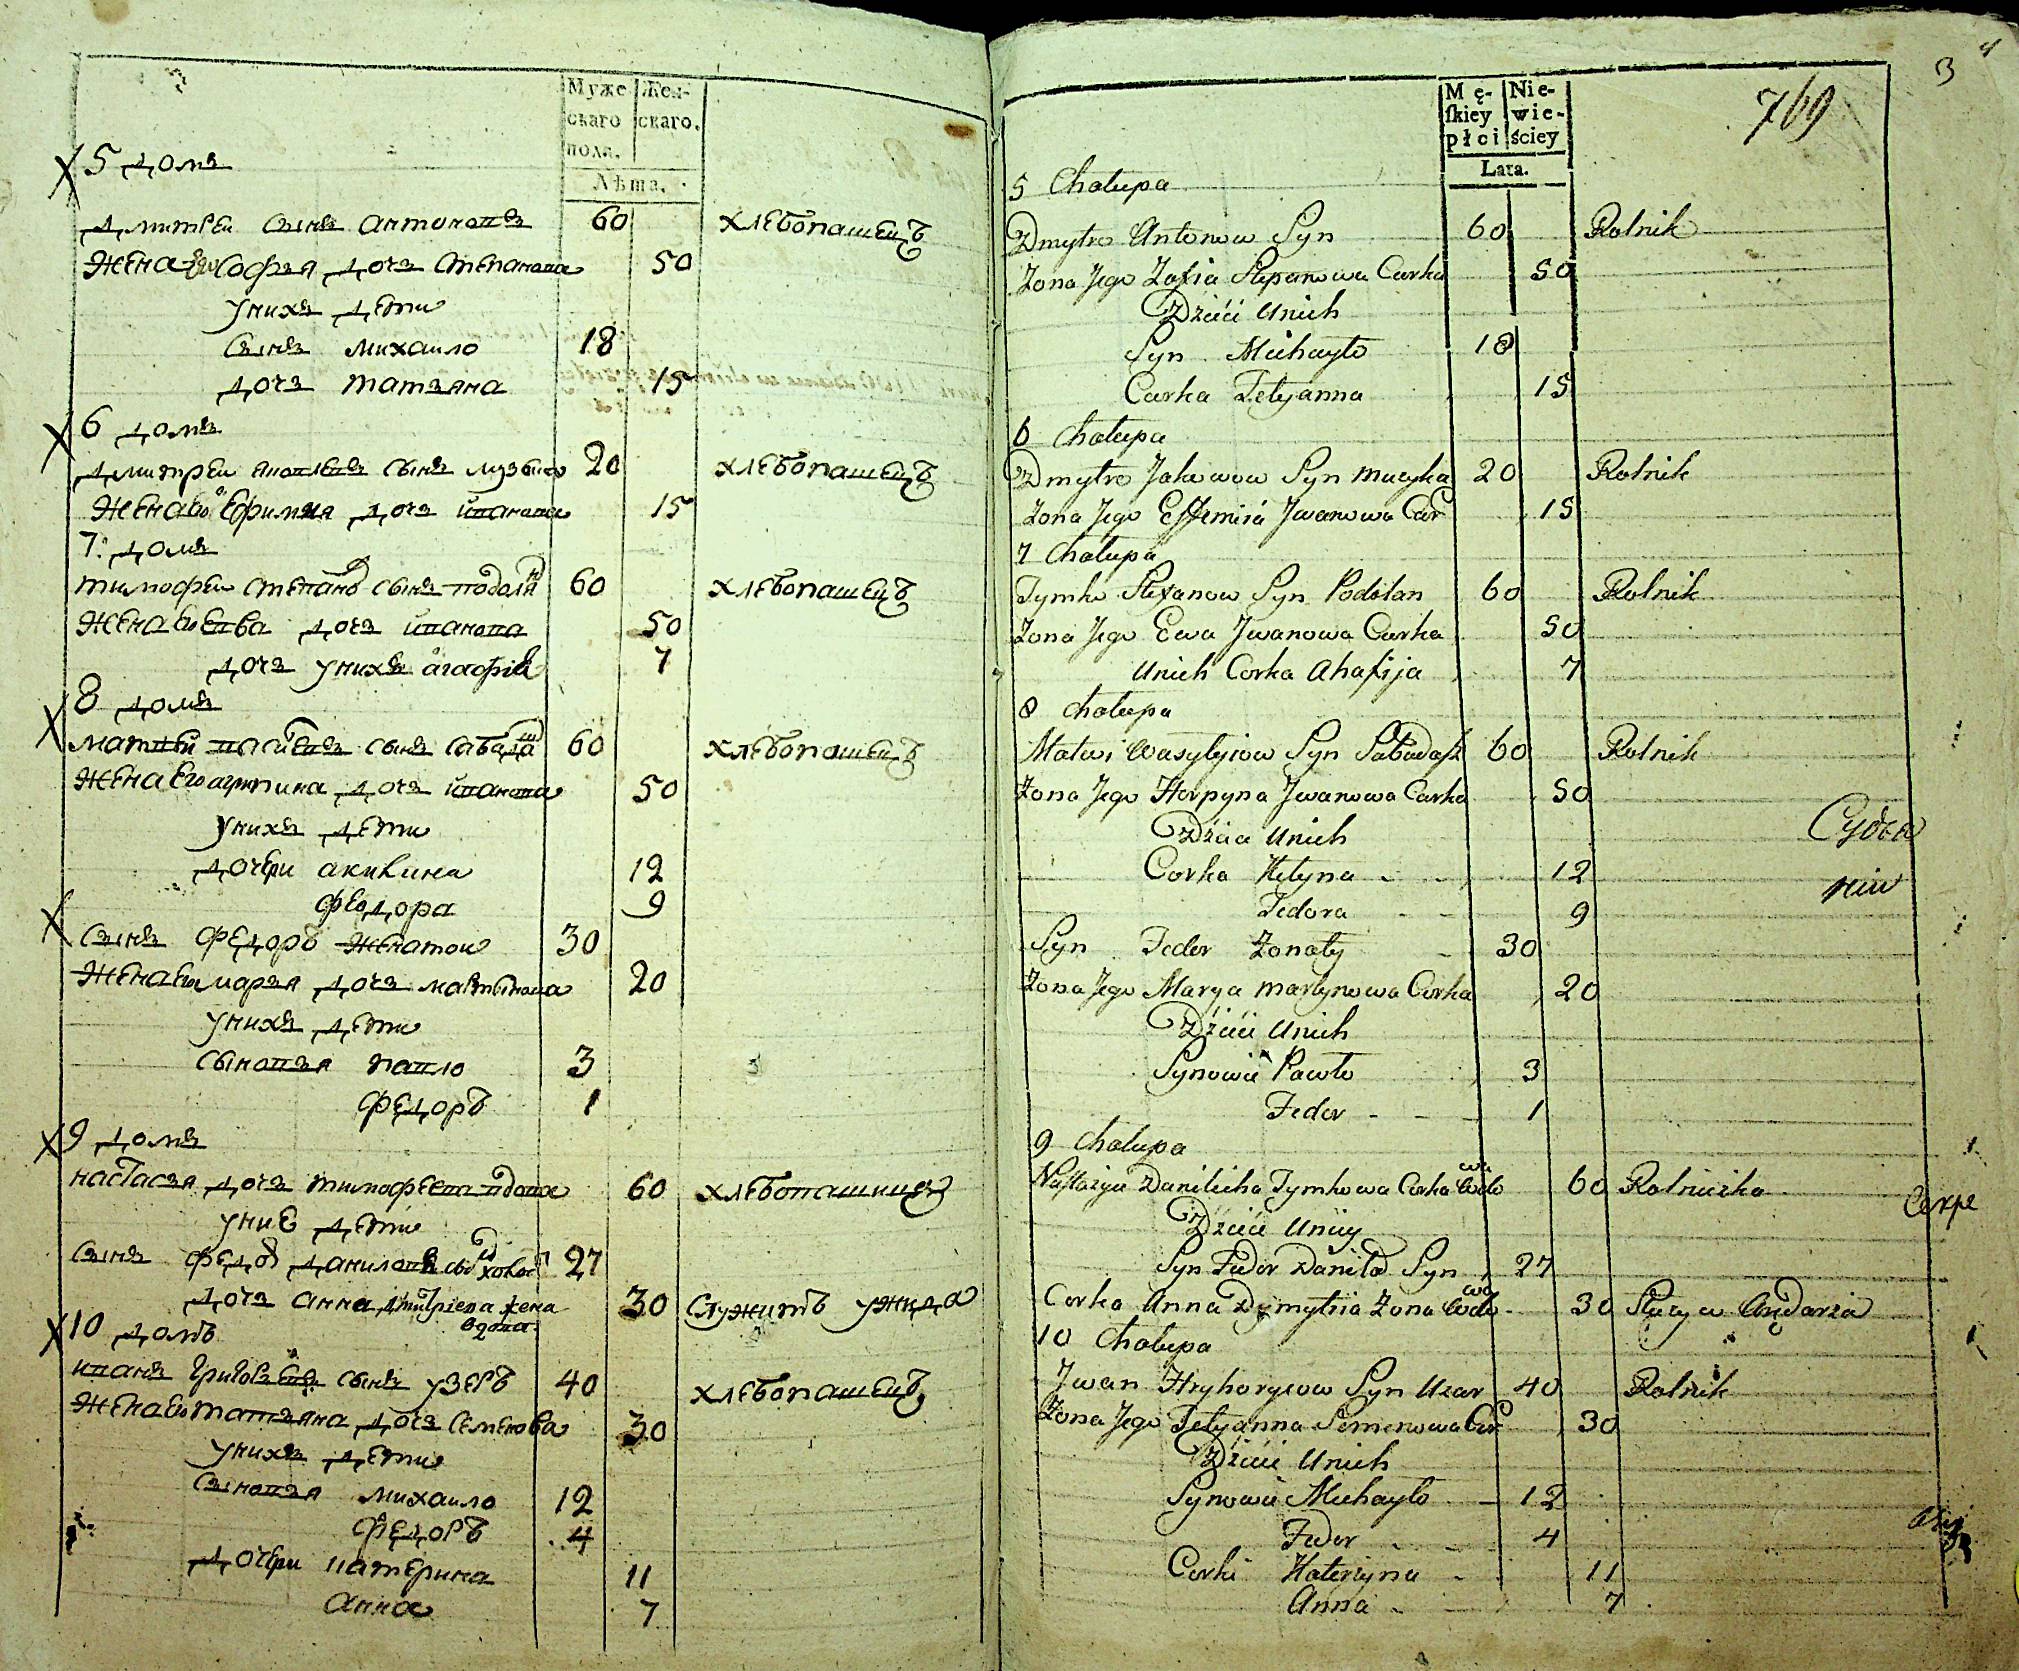 Муже
скаго
пола.
Жен-
скаго.
Лѣта.
5 домъ
Дмитреи сынъ антоновъ 60 хлебопашецъ
Жена его Софья дочь степанова 50
у нихъ дети
сынъ михаило 18
дочь татьяна 15
6 домъ
Дмитреи яковлевъ сынъ музыка 20 хлебопашецъ
Жена его Ефимия дочь иванова 15
7: домъ
тимофеи степановъ сынъ подолян 60 хлебопашецъ
Жена его Евва дочь иванова 50
дочь у нихъ агафія 7
8 домъ
матвѣй васильевъ сынъ 60 хлебопашецъ
Жена его агрипина дочь иванова 50
у нихъ дети
дочери акилина 12
федора 9
сынъ федоръ женатои 30
Жена его марья дочь мартынова 20
у нихъ дети
сыновья павло 3
федоръ 1
9 домъ
настасья дочь тимофеева вдова 60 хлебопашица
у неё дети
сынъ федор даниловъ холост 27
дочь анна дмитріева жена вдова 30 служитъ у жида
10 домъ
иванъ григорьевъ сынъ узеръ 40 хлебопашецъ
Жена его татьяна дочь семенова 30
у нихъ дети
сыновья михаило 12
федоръ 4
дочери катерина 11
анна 7
3 4
769
Mę-
ſkiey
płci
Nie-
wie-
ściey
Lata.
5 Chałupa
Dmytro Antonow Syn 60 Rolnik
Żona Jego Zofia Stepanowa Curka 50
Dzieci Unich
Syn Michayło 18
Curka Tetyanna 15
6 Chałupa
Dmytro Jakowow Syn Muzyka 20 Rolnik
Żona Jego Effemia Jwanowa Cur 15
7 Chałupa
Tymko Stefanow Syn Podolan 60 Rolnik
Żona Jego Ewa Jwanowa Curka 50
Unich Corka Ahafija 7
8 Chałupa
Matwi Wasylyiow Syn Sabadaſz 60 Rolnik
Żona Jego Horpyna Jwanowa Curka 50
Dzieci Unich
Corka Kylyna 12
Fedora 9
Syn Fedor Żonaty 30
Żona Jego Marya Martynowa Corka 20
Dzieci Unich
Synowie Pawło 3
Fedor 1
9 Chałupa
Naſtazya Danilicha Tymkowa Corka Wdowa 60 Rolniczka
Dzieci Uniey
Syn Fedor Daniło Syn 27
Corka Anna Dymytria Żona Wdowa 30 Służy w Arędarża
10 Chałupa
Jwan Hryhoryow Syn Uzar 40 Rolnik
Żona Jego Tetyanna Semenowa Cur 30
Dzieci Unich
Synowie Michayło 12
Fedor 4
Corki Katerżyna 11
Anna 7